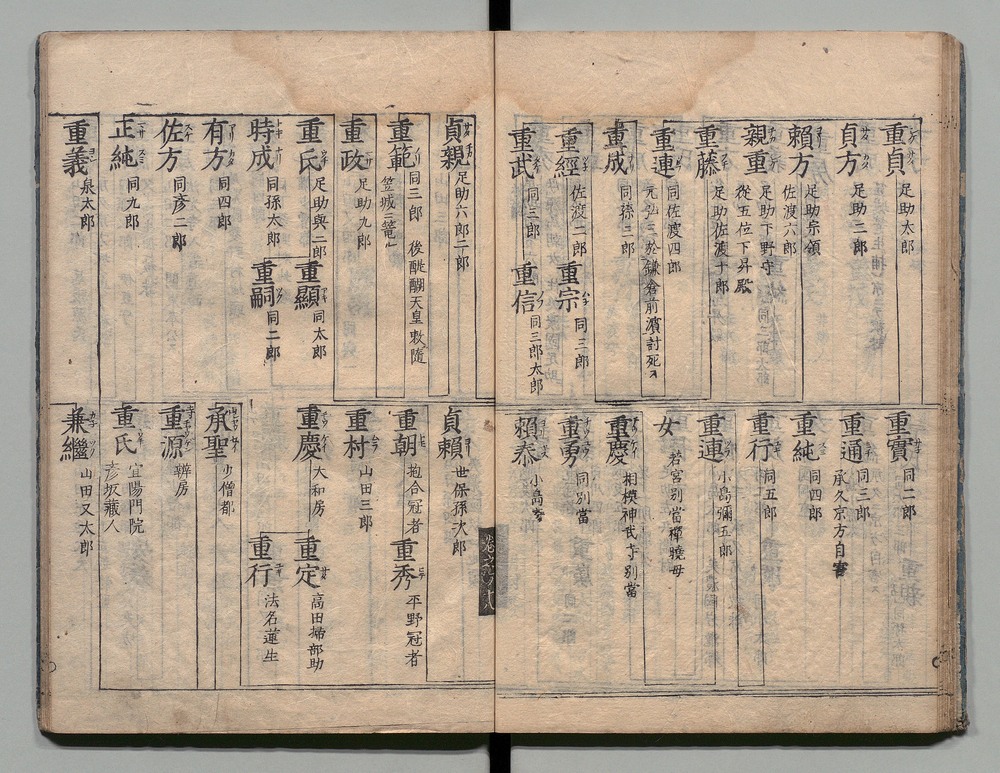 重貞 足助太郎
貞方 足助三郎
賴方 足助宗領
佐渡六郎
親重 足助下野守
從五位下昇殿
重藤 足助佐渡十郎
重連 同佐渡四郎
元弘三於鎌倉前濱討死
重成 同孫三郎
重經 佐渡二郎
重宗 同三郎
重武 同三郎
重信 同三郎太郎
重實 同二郎
重通 同三郎
承久京方自害
重純 同四郎
重行 同五郎
重連 小島彌五郎
女 若宮別當禪曉母
重慶 相模神武寺別當
重勇 同別當
賴泰 小島
貞親 足助六郎二郎
重範 同三郎 後醍醐天皇敕隨
笠城ニ篭
重政 足助九郎
重氏 足助與二郎
重顯 同太郎
時成 同孫太郎
重嗣 同二郎
有方 同四郎
佐方 同彥二郎
正純 同九郎
重義 泉太郎
貞賴 世保孫次郎
重朝 抱合冠者
重秀 平野冠者
重村 山田三郎
重慶 大和房
重定 高田掃部助
重行 法名蓮生
承聖 少僧都
重源 辨房
重氏 宜陽門院
彥坂藏人
兼繼 山田又太郎